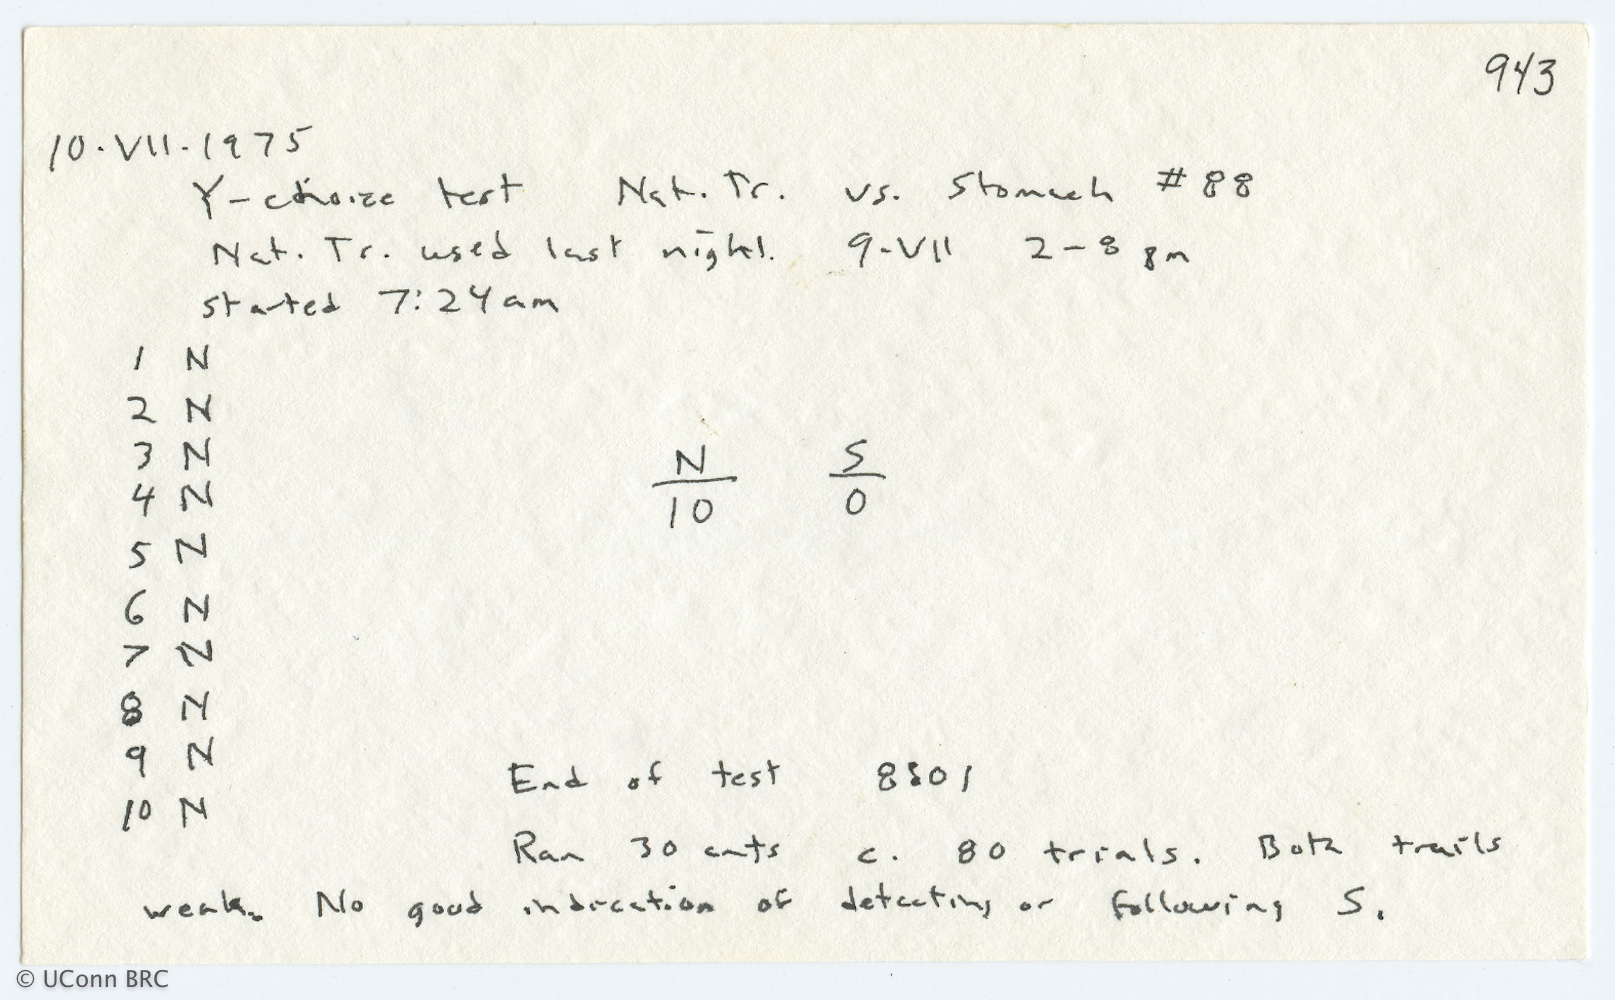 943
10·VII·1975
Y-choice test Nat. Tr. vs. Stomach #88
Nat. Tr. used last night. 9·VII 2-8 pm
started 7:24 am
1 N
2 N
3 N
4 N
5 N
6 N
7 N
8 N
9 N
10 N
N S
10 0
End of test
Ran 30 ants c. 80 trials. Both trails
weak. No good indication of detecting or following S.
© UConn BRC